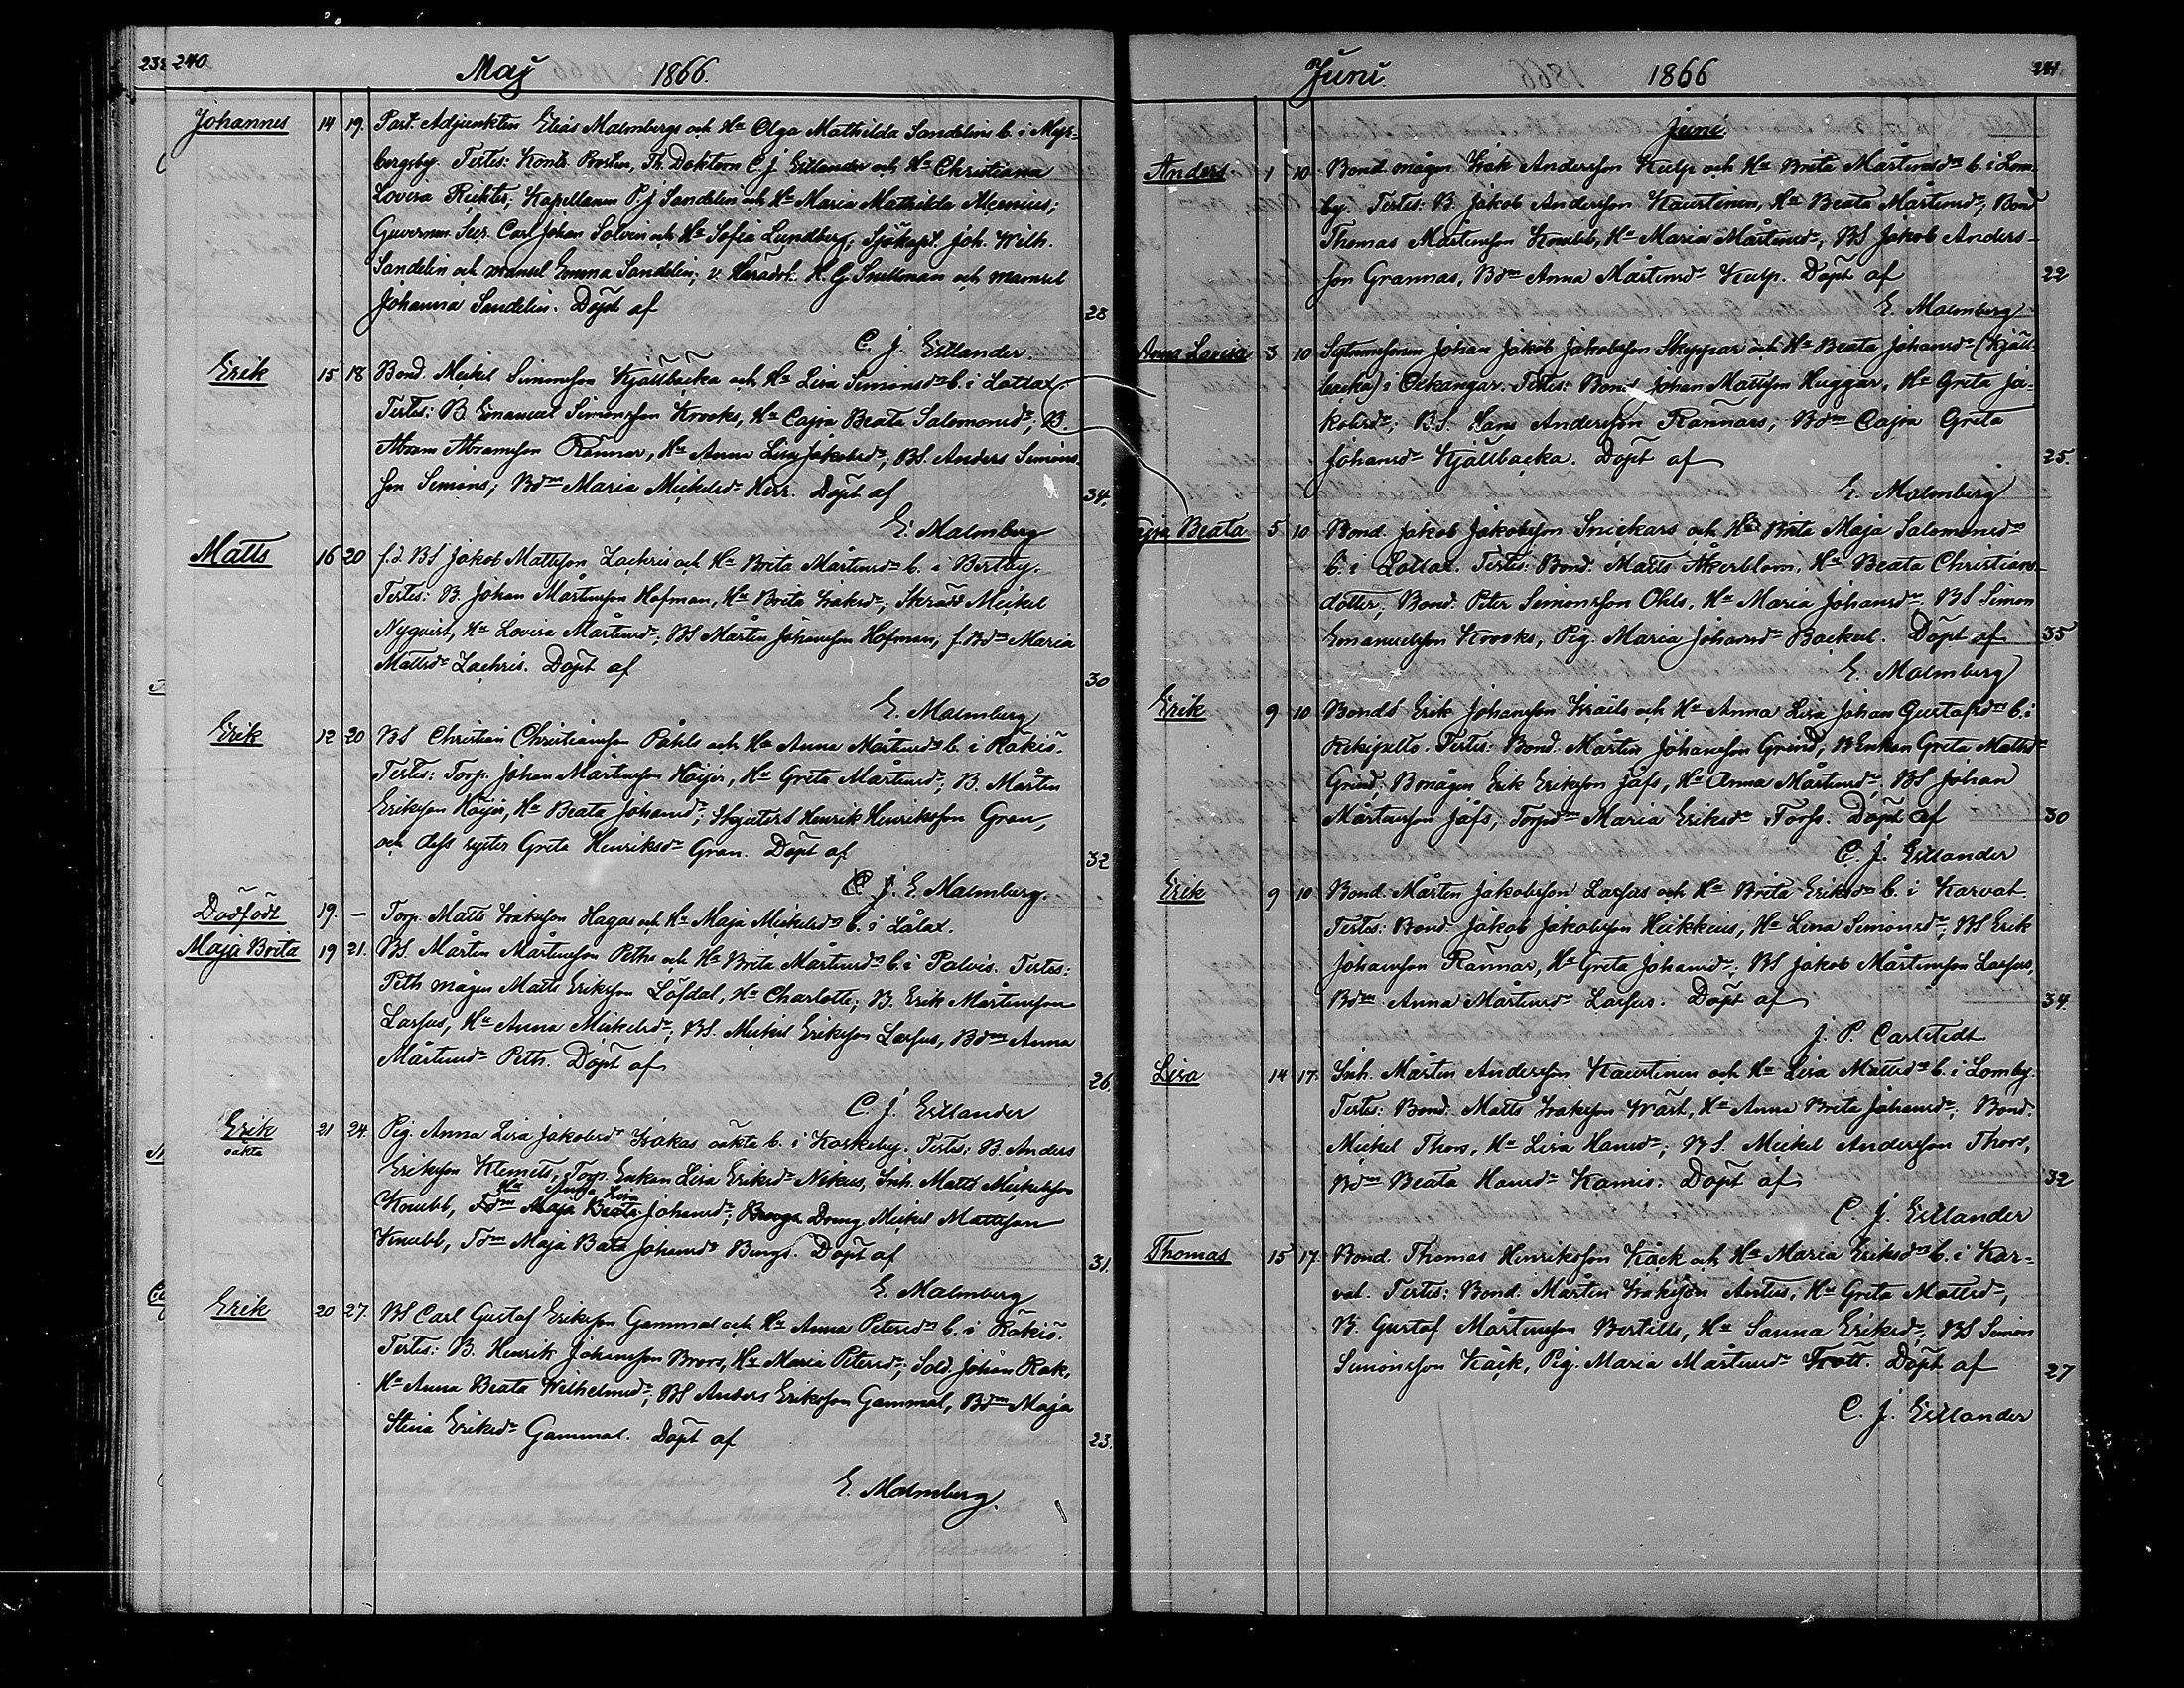 240
Maj 1866.
Johannes 14 19. Past. Adjunkten Elias Malmbergs och Hu Olga Mathilda Sandelins b. i Meyer-
bergsby. Testes: Kontr. Prosten, Th. Doktorn C. J. Estlander och Hu Christiana
Lovisa Richter; Kapellanen P. J. Sandelin och Hu Maria Mathilda Alcenius;
Guvernm. Secr. Carl Johan Solvin och Hu Sofia Lundberg; Sjökapt. Joh. Wilh.
Sandelin och mamsel Emma Sandelin; v. Häradsh. K. G. Snellman och mamsel
Johanna Sandelin. Döpt af 28
C. J. Estlander.
Erik 15 18 Bond. Mickel Simonsson Kjällbacka och Hu Lisa Simonsdrs b. i Lottax.
Testes: B. Emanuel Simonsson Krooks, Hu Cajsa Beata Salomonsdr; B.
Abram Abramsson Rannar, Hu Anna Lisa Jakobsdr; BS. Anders Simons-
son Simons; Bdm Maria Mickelsdr Herr. Döpt af 34.
E. Malmberg
Matts 16 20 f.d. BS Jakob Mattsson Zachris och Hu Brita Mårtensdrs b. i Bertby.
Testes: B. Johan Mårtensson Hofman, Hu Brita Isaksdr; Skrädd Mickel
Nyqvist, Hu Lovisa Mårtensdr; BS Mårten Johansson Hofman; f. Bdm Maria
Mattsdr Zachris. Döpt af 30
E. Malmberg
Erik 12 20 BS Christian Christiansson Påhls och Hu Anna Mårtensdrs b. i Rökiö.
Testes: Torp. Johan Mårtensson Höijer, Hu Greta Mårtensdr; B. Mårten
Eriksson Höijer, Hu Beata Johansdr; Skjuters Henrik Henriksson Gran,
och dess syster Greta Henriksdr Gran. Döpt af 32
E. Malmberg.
Dödfödt 19. — Torp. Matts Isaksson Hagas och Hu Maja Mickelsdrs b. i Lålax.
Maja Brita 19 21. BS. Mårten Mårtensson Peths och Hu Brita Mårtensdrs b. i Palvis. Testes:
Peth mågen Matts Eriksson Löfdal, Hu Charlotte; B. Erik Mårtensson
Lassus, Hu Anna Mickelsdr; BS. Mickel Eriksson Lassus, Bdm Anna
Mårtensdr Peth. Döpt af 26.
C. J. Estlander
Erik 21 24. Pig. Anna Lisa Jakobsdr Isakas oäkta b. i Koskeby. Testes: B. Anders
oäkta
Eriksson Klemets, Torp. Enkan Lisa Eriksdr Nikus, Inh. Matts Mickelsson
Hu Lisa
Knubb, Tdm Maja Beata Johansdr; Dreng Mickel Mattsson
Knubb, Tdm Maja Bata Johansdr Bengs. Döpt af 31.
E. Malmberg
Erik 20 27. BS Carl Gustaf Eriksson Gammal och Hu Anna Petersdrs b. i Rökiö.
Testes: B. Henrik Johansson Brors, Hu Maria Petersdr; Sold. Johan Rak,
Hu Anna Beata Wilhelmsdr; BS Anders Eriksson Gammal, Bdm Maja
Stina Eriksdr Gammal. Döpt af 23.
E. Malmberg.
Juni. 1866 241.
Juni
Anders 1 10 Bond. mågen Isak Andersson Kulp och Hu Brita Mårtensdrs b. i Lom-
by. Testes: B. Jakob Andersson Kaustinen, Hu Beata Mårtensdr; Bond
Thomas Mårtensson Knubb, Hu Maria Mårtensdr; BS Jakob Anders-
son Grannas, Bdm Anna Mårtensdr Kulp. Döpt af 22
E. Malmberg
Anna Lovisa 3 10 Sytningsman Johan Jakob Jakobsson Skeppar och Hu Beata Johansdrs (Kjäll-
backa) i Ockangar. Testes: Bond Johan Mattsson Huggar, Hu Greta Ja-
kobsdr; BS. Hans Andersson Rannars, Bdm Cajsa Greta
Johansdr Kjällbacka. Döpt af 25.
E. Malmberg
Beata 5 10 Bond. Jakob Jakobsson Snickars och Hu Brita Maja Salomonsdrs
b. i Lottax. Testes: Bond. Matts Åkerblom, Hu Beata Christians-
dotter; Bond. Peter Simonsson Ohls, Hu Maria Johansdr; BS Simon
Emanuelsson Krooks, Pig. Maria Johansdr Backul. Döpt af 35
E. Malmberg
Erik 9 10 Bonds Erik Johansson Israels och Hu Anna Lisa Johan Gustafsdrs b. i
Rekipelto. Testes: Bond. Mårten Johansson Grind, BEnkan Greta Mattsdr
Grind; Bmågen Erik Eriksson Jåfs, Hu Anna Mårtensdr; BS Johan
Mårtensson Jåfs, Torpdm Maria Eriksdr Forss. Döpt af 30
C. J. Estlander
Erik 9 10 Bond. Mårten Jakobsson Lassus och Hu Brita Eriksdrs b. i Karvat.
Testes: Bond. Jakob Jakobsson Heikkius, Hu Lena Simonsdr; BS Erik
Johansson Rannar, Hu Greta Johansdr; BS Jakob Mårtensson Lassus,
Bdm Anna Mårtensdr Lassus. Döpt af 34.
J. P. Carlstedt
Lisa 14 17. Inh. Mårten Andersson Kaustinen och Hu Lisa Mattsdrs b. i Lomby.
Testes: Bond. Matts Isaksson Wärt, Hu Anna Brita Johansdr; Bond.
Mickel Thors, Hu Lisa Hansdr; BS. Mickel Andersson Thors,
Bdm Beata Hansdr Kamis. Döpt af 32
C. J. Estlander
Thomas 15 17. Bond. Thomas Henriksson Kåck och Hu Maria Eriksdrs b. i Kar-
vat. Testes: Bond. Mårten Isaksson Antus, Hu Greta Mattsdr;
B. Gustaf Mårtensson Bertills, Hu Sanna Eriksdr; BS Simon
Simonsson Kåck, Pig. Maria Mårtensdr Trott. Döpt af 27
C. J. Estlander